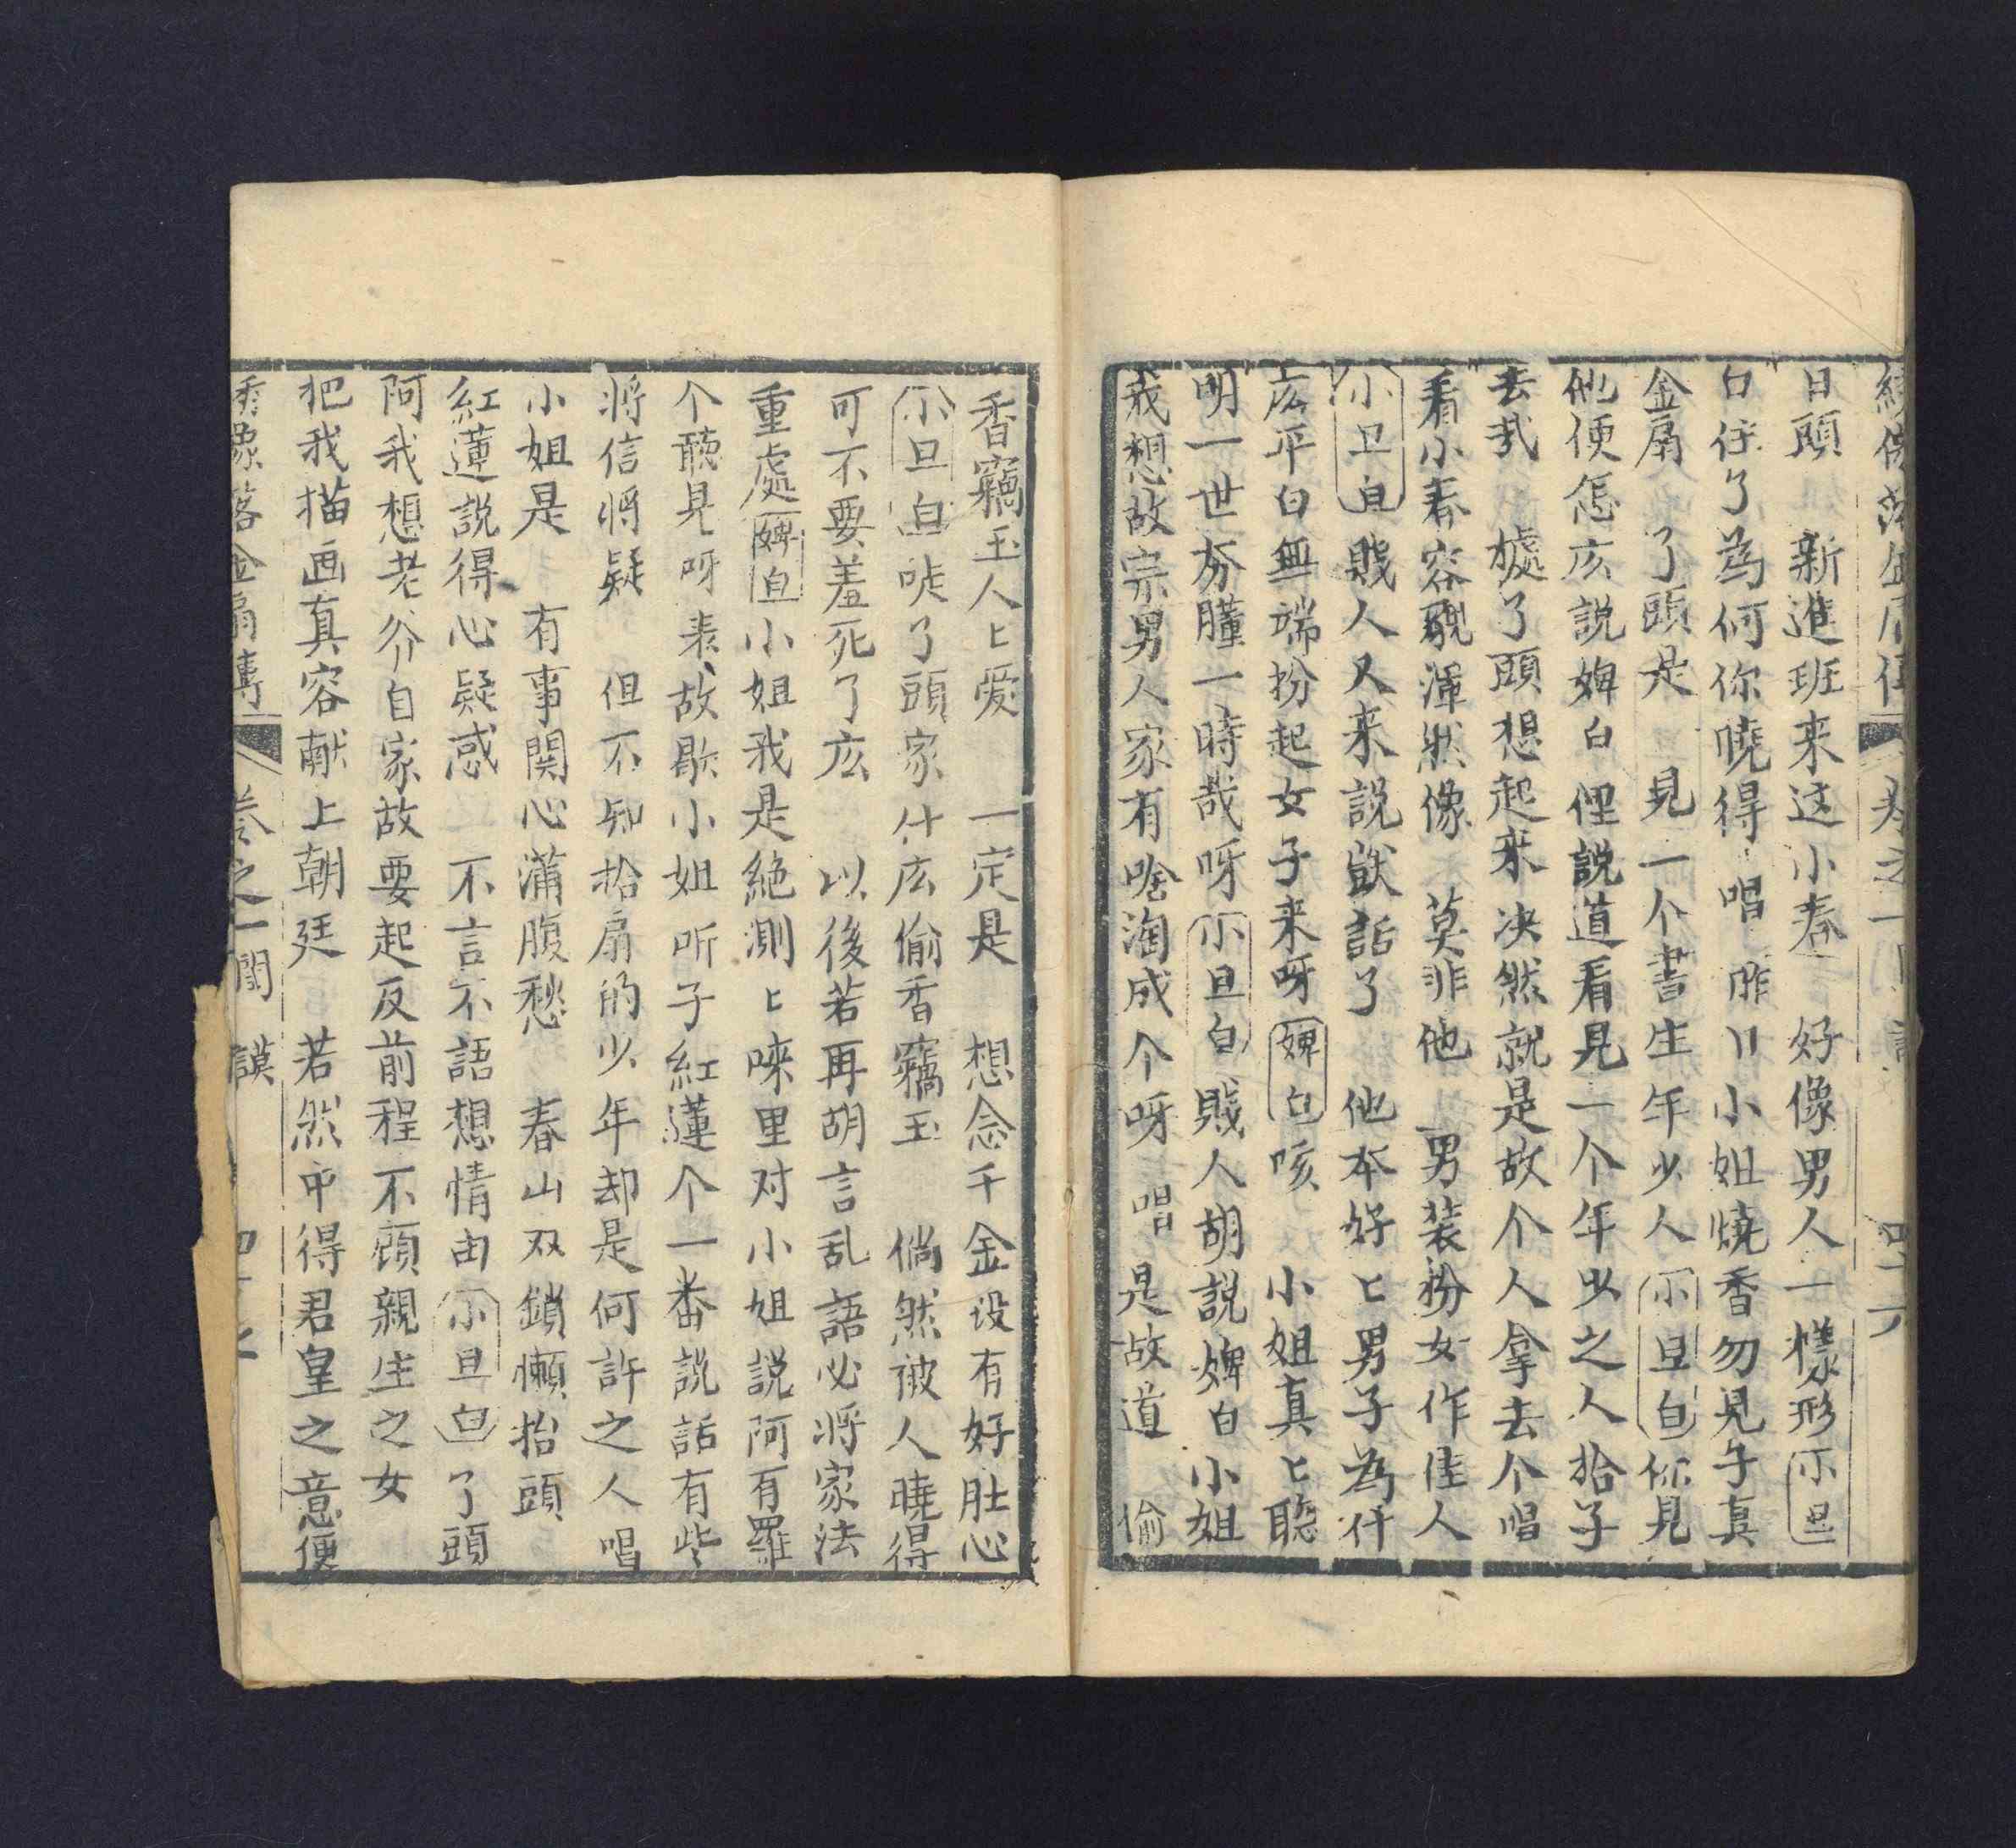 日頭　新進班来这小春　好像男人一樣形小旦
白住了為何你曉得　唱　昨日小姐燒香勿見子真
金扇　了頭是　見一个書生年少人小旦白你見
他便怎庅説婢白俚説道看見一个年少之人拾子
去哉　唬了頭想起来决然就是故个人拿去个唱
看小春容貌渾然像　莫非他　男装扮女作佳人
小旦白賎人又来説獃話了　他本好匕男子為什
庅平白無端扮起女子来呀婢白咳　小姐真匕聡
明一世夯朣一時哉呀小旦白賎人胡説婢白小姐
我想故宗男人家有啥淘成个呀　唱　是故道　偷
香竊玉人匕爱　一定是　想念千金设有好肚心
小旦白唗了頭家什庅偷香竊玉　倘然被人曉得
可不要羞死了庅　以後若再胡言乱語必将家法
重處婢白小姐我是絶測匕唻里对小姐説阿有羅
个聽見呀表故歇小姐听子紅蓮个一番説話有些
将信将疑　但不知拾扇的少年却是何許之人唱
小姐是　有事関心满腹愁　春山双鎖懶抬頭
紅蓮説得心疑惑　不言不語想情由小旦白了頭
阿我想老爷自家故要起反前程不顧親生之女
把我描画真容献上朝廷　若然中得君皇之意便
綉像落金扇傳　卷之一　閨謨　四十七